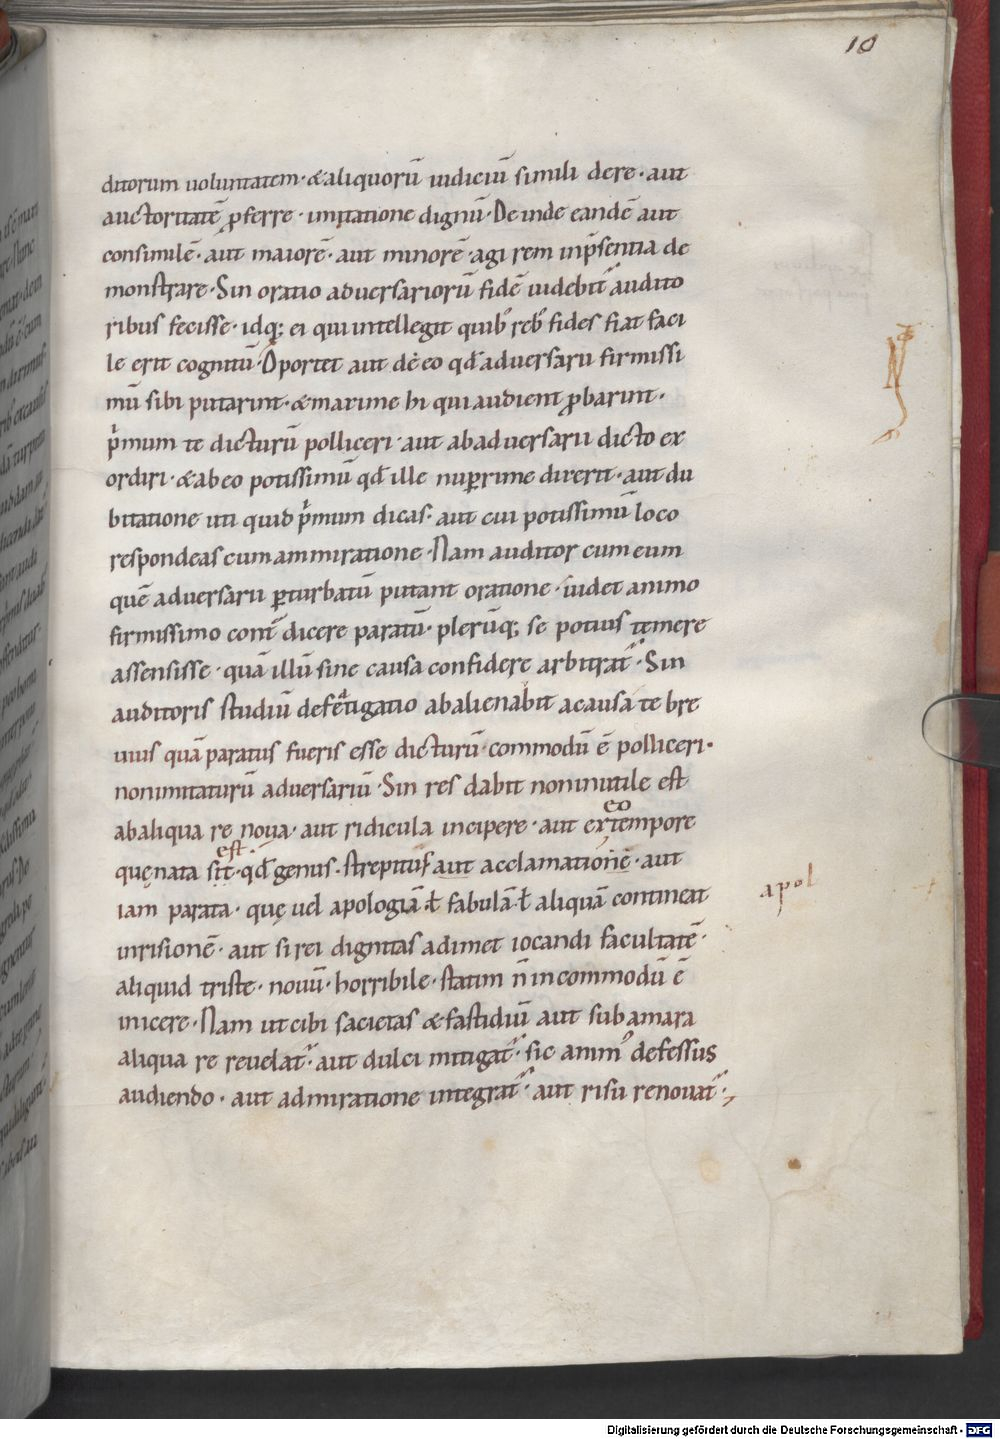 10
ditorum uoluntatem · & aliquorū iudiciū simili dere · aut
auctoritatē ꝓferre · imitatione dignū · De inde eandē aut
consimilē · aut maiorē · aut minorē · agi rem inp̄sentia de
monstrare · Sin oratio aduersariorū fidē uidebit᷑ audito
ribus fecisse · idq; ei qui intellegit quib; reb; fides fiat faci
le erit cognitū · Oportet aut de eo qd̄ aduersarii firmissi
mū sibi putarint · & maxime hi qui audient ꝓbarint ·
p̄mum te dicturū polliceri · aut ab aduersarii dicto ex
ordiri · & ab eo potissimū qd̄ ille nuꝑrime dixerit · aut du
bitatione uti quid p̄mum dicas · aut cui potissimū loco
respondeas cum ammiratione · Nam auditor cum eum
quē aduersarii ꝑturbatū putant oratione · uidet animo
firmissimo cont̄ dicere paratū · plerūq; se potius temere
assensisse · quā illū sine causa confidere arbitrat᷑ · Sin
auditoris studiū defetigatio abalienabit a causa te bre
uius quā paratus fueris esse dicturū · commodū ē polliceri ·
non imitaturū aduersariū · Sin res dabit non inutile est
eo
ab aliqua re noua · aut ridicula incipere · aut ex tempore
est
quę nata sit · qd̄ genus · strepitus aut acclamationē · aut
iam parata · quę uel apologiā ł fabulā ł aliquā contineat
apol
inrisionē · aut si rei dignitas adimet iocandi facultatē ·
aliquid triste · nouū · horribile · statim n̄ incommodū ē
inicere · Nam ut cibi sacietas & fastidiū aut sub amara
aliqua re reuelat᷑ · aut dulci mitigat᷑ · sic anim᷒ defessus
audiendo · aut admiratione integrat᷑ · aut risu renouat᷑ ·
Digitalisierung gefördert durch die Deutsche Forschungsgemeinschaft - DFG